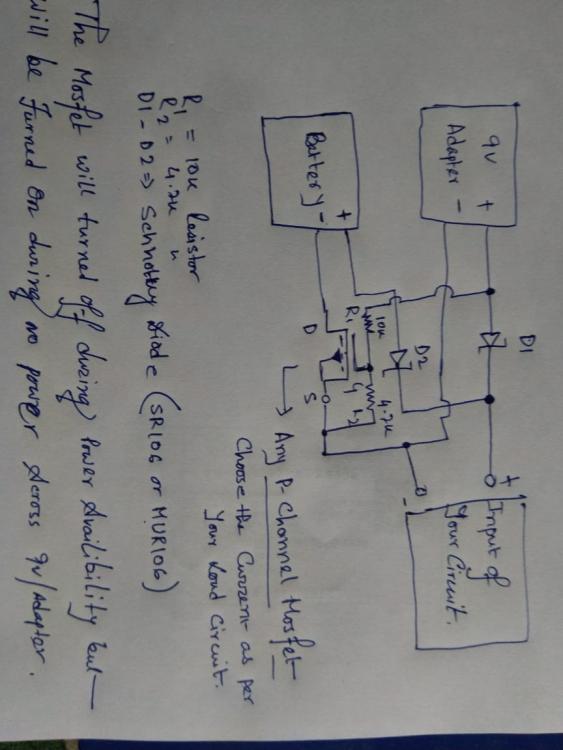 9v +
Adapter -
D1
+
Input of
your Circuit.
-
D2
Battery +
-
10k
R1
4.7k
G
D
S
Any P-Channel Mosfet
Choose the Current as per
Your Load Circuit.
R1 = 10k Resistor
R2 = 4.7k "
D1-D2 => Schhottky diode (SR106 or MUR106)
The Mosfet will turned off during Power Availibility but
will be Turned on during no power Across 9v/Adaptor.